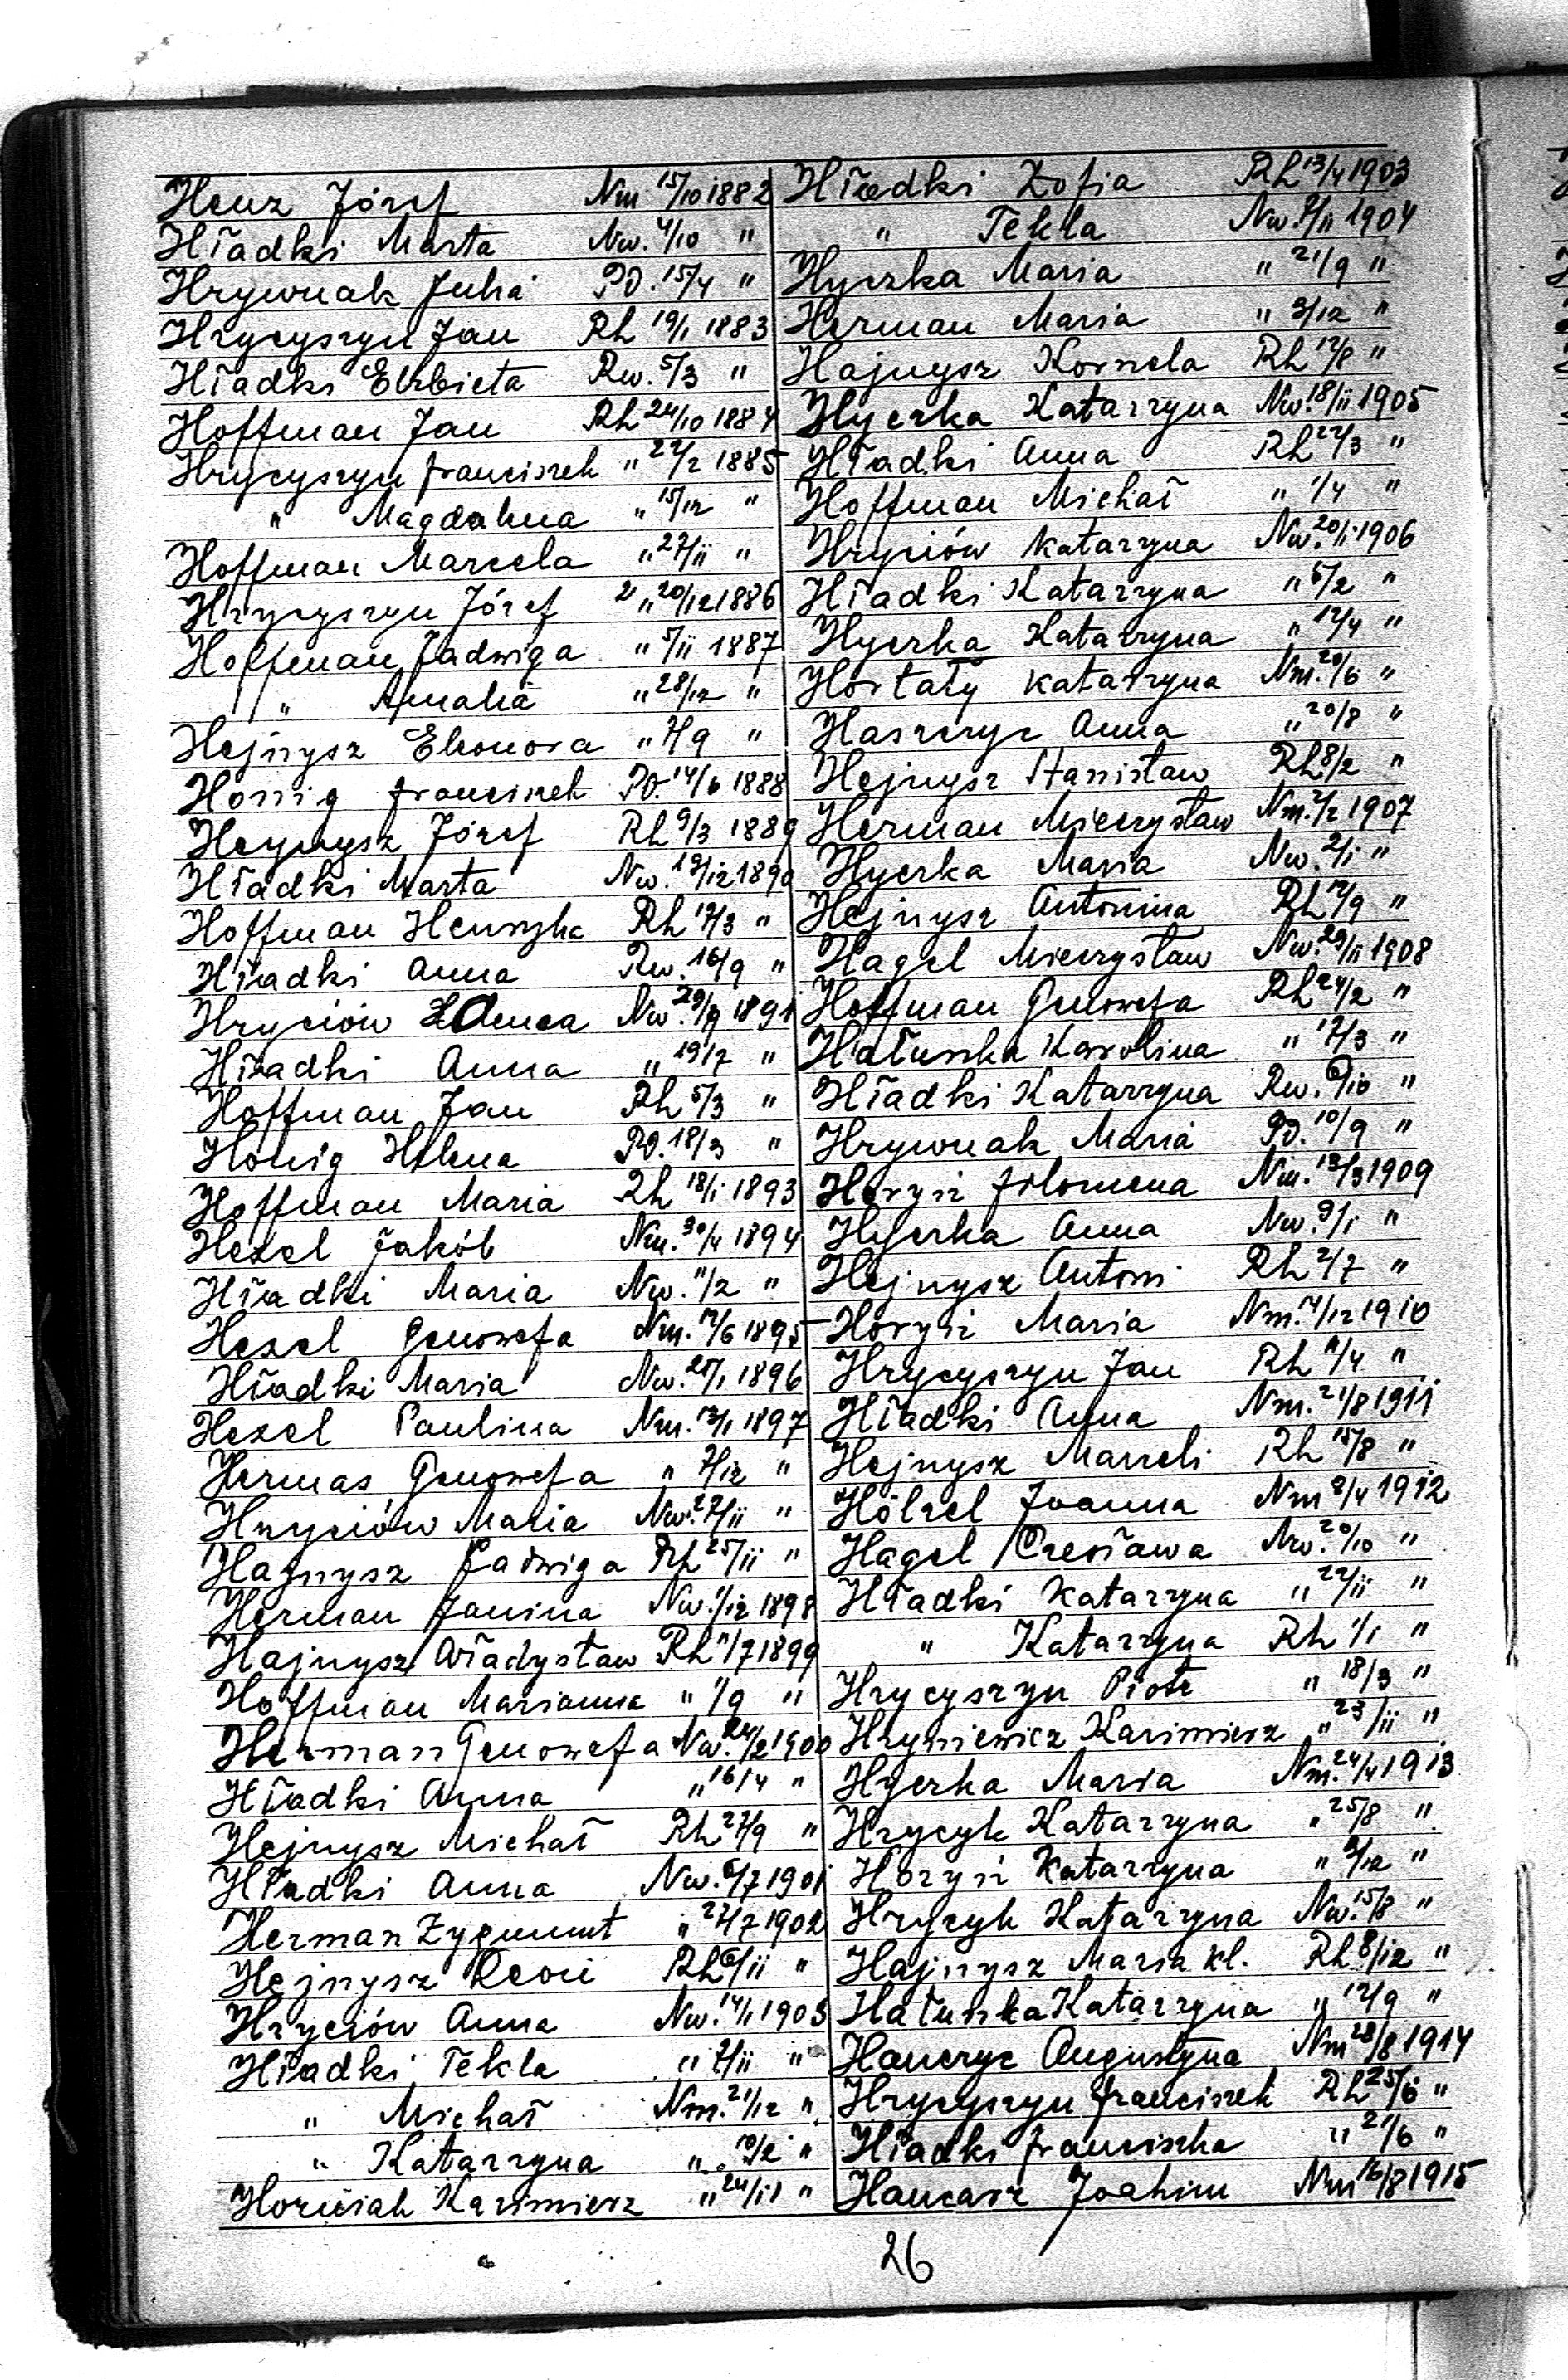 Henz Józef Nm 15/10 1882
Hładki Marta Nw. 4/10 "
Hrywnak Julia PD. 15/4 "
Hrycyszyn Jan Rh 19/1 1883
Hładki Elżbieta Rw. 5/3 "
Hoffman Jan Rh 24/10 1884
Hrycyszyn franciszek " 22/2 1885
" Magdalena " 15/12 "
Hoffman Marcela " 27/11 "
Hrycyszyn Józef " 20/12 1886
Hoffman Jadwiga " 5/11 1887
" Amalia " 28/12 "
Hejnysz Eleonora " 7/9 "
Honig franciszek PD. 14/6 1888
Hejnysz Józef Rh 9/3 1889
Hładki Marta Nw. 19/12 1890
Hoffman Henryka Rh 17/3 "
Hładki Anna Rw. 16/9 "
Hryciów Anna Nw. 29/9 1891
Hładki Anna " 19/7 "
Hoffman Jan Rh 5/3 "
Honig Helena PD. 18/3 "
Hoffman Maria Rh 18/1 1893
Hexel Jakób Nm. 30/4 1894
Hładki Maria Nw. 11/2 "
Hexel Genowefa Nm. 17/6 1895
Hładki Maria Nw. 25/1 1896
Hexel Paulina Nm. 13/1 1897
Hermas Genowefa " 7/12 "
Hryciów Maria Nw. 27/11 "
Hajnysz Jadwiga Rh 25/11 "
Herman Janina Nw. 1/12 1898
Hajnysz Władysław Rh 11/7 1899
Hoffman Marianna " 1/9 "
Herman Genowefa Nw. 24/2 1900
Hładki Anna " 16/4 "
Hejnysz Michał Rh 27/9 "
Hładki Anna Nw. 6/7 1901
Herman Zygmunt " 27/7 1902
Hejnysz Leon Rh 6/11 "
Hryciów Anna Nw. 14/1 1903
Hładki Tekla " 7/11 "
" Michał Nm. 21/12 "
" Katarzyna "
Horniak Kazimierz " 24/11 "
Hładki Zofia Rh 13/4 1903
" Tekla Nw. 8/11 1904
Hyczka Maria " 21/9 "
Herman Maria " 3/12 "
Hajnysz Kornela Rh 17/8 "
Hyczka Katarzyna Nw. 18/11 1905
Hładki Anna Rh 27/3 "
Hoffman Michał " 1/4 "
Hryciów Katarzyna Nw. 20/1 1906
Hładki Katarzyna " 5/2 "
Hyczka Katarzyna " 12/4 "
Hortały Katarzyna Nm. 20/6 "
Haszczyc Anna " 20/8 "
Hejnysz Stanisław Rh 8/2 "
Herman Mieczysław Nm. 2/2 1907
Hyczka Maria Nw. 2/1 "
Hejnysz Antonina Rh 17/9 "
Hagel Mieczysław Nw. 29/11 1908
Hoffman Genowefa Rh 24/2 "
Hałuszka Karolina " 17/3 "
Hładki Katarzyna Rw. 6/10 "
Hrywnak Maria PD. 10/9 "
Horyń Filomena Nm. 13/3 1909
Hyczka Anna Nw. 9/1 "
Hejnysz Antoni Rh 2/7 "
Horyń Maria Nm. 4/12 1910
Hrycyszyn Jan Rh 11/4 "
Hładki Anna Nm. 21/8 1911
Hejnysz Marceli Rh 15/8 "
Hölzel Joanna Nm 8/4 1912
Hagel Czesława Nw. 20/10 "
Hładki Katarzyna " 22/11 "
" Katarzyna Rh 1/1 "
Hrycyszyn Piotr " 18/3 "
Hryniewicz Kazimierz " 23/11 "
Hyczka Maria Nm. 24/4 1913
Hrycyk Katarzyna " 25/8 "
Horyń Katarzyna " 8/12 "
Hrycyk Katarzyna Nw. 15/8 "
Hajnysz Maria kl. Rh 8/12 "
Hałuszka Katarzyna " 12/9 "
Hanczyc Augustyna Nm 28/8 1914
Hrycyszyn franciszek Rh 25/6 "
Hładki franciszka " 21/6 "
Hancarz Joahim Nm 16/8 1915
26